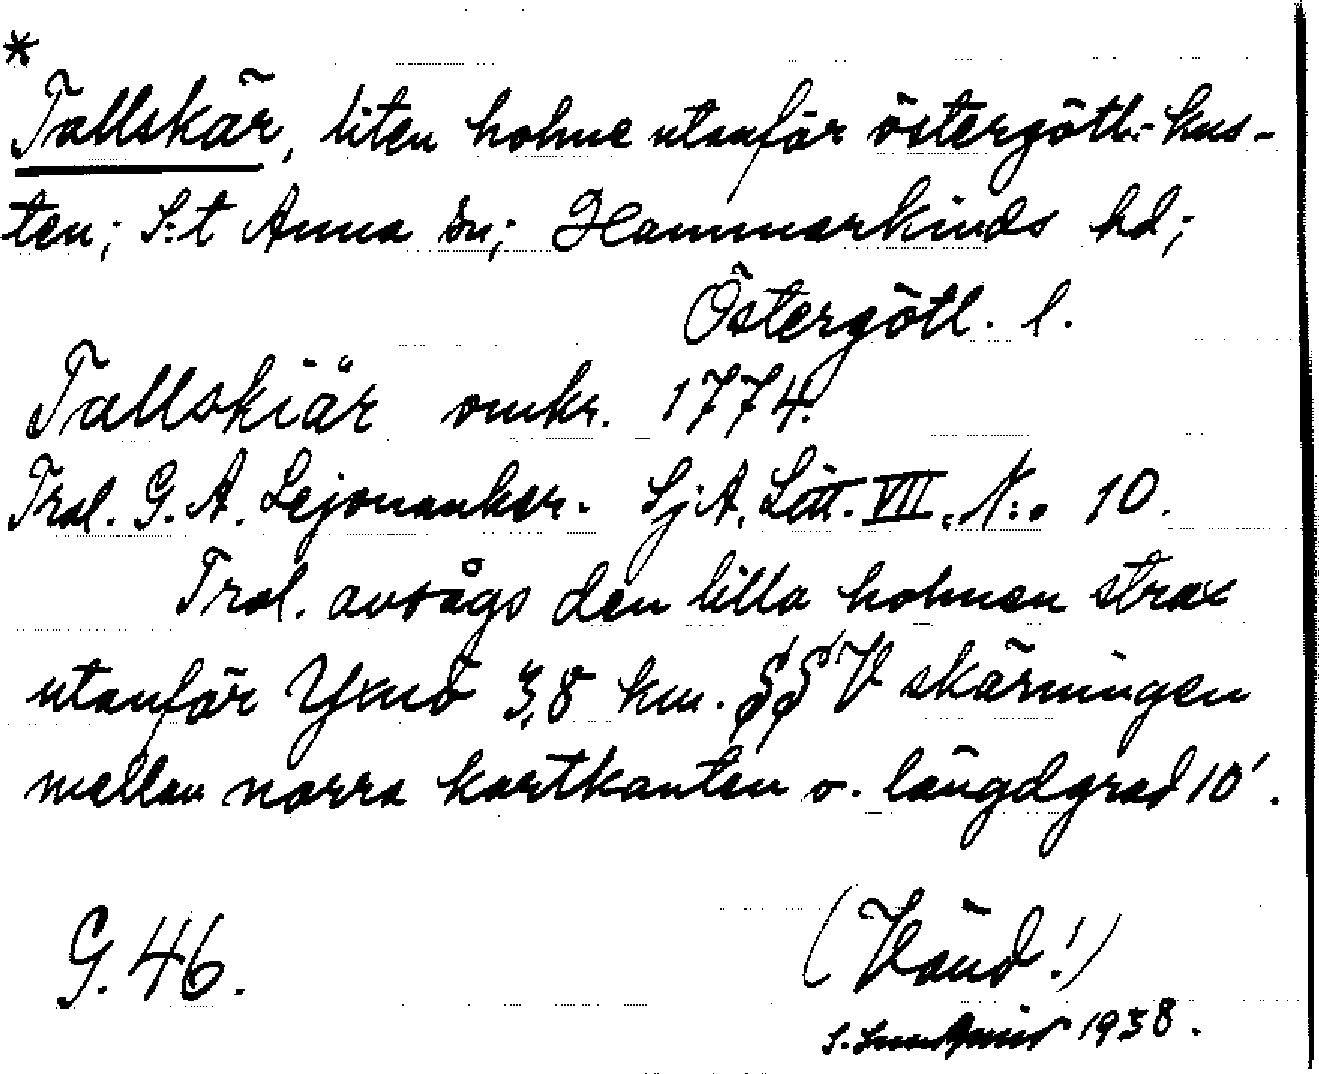 *
Tallskär, liten holme utanför östergötl:kus-
ten; S:t Anna sn; Hammarkinds hd;
Östergötl. l.
Tallskiär omkr. 1774.
Trol. G. A. Lejonanker. SjA. Litt. VII. N:o 10.
Trol. avsågs den lilla holmen strax
utanför Yxnö 3,8 km. §§V skärningen
mellan norra kartkanten o. längdgrad 10'.
G. 46.
(Vänd!)
S. 1938.